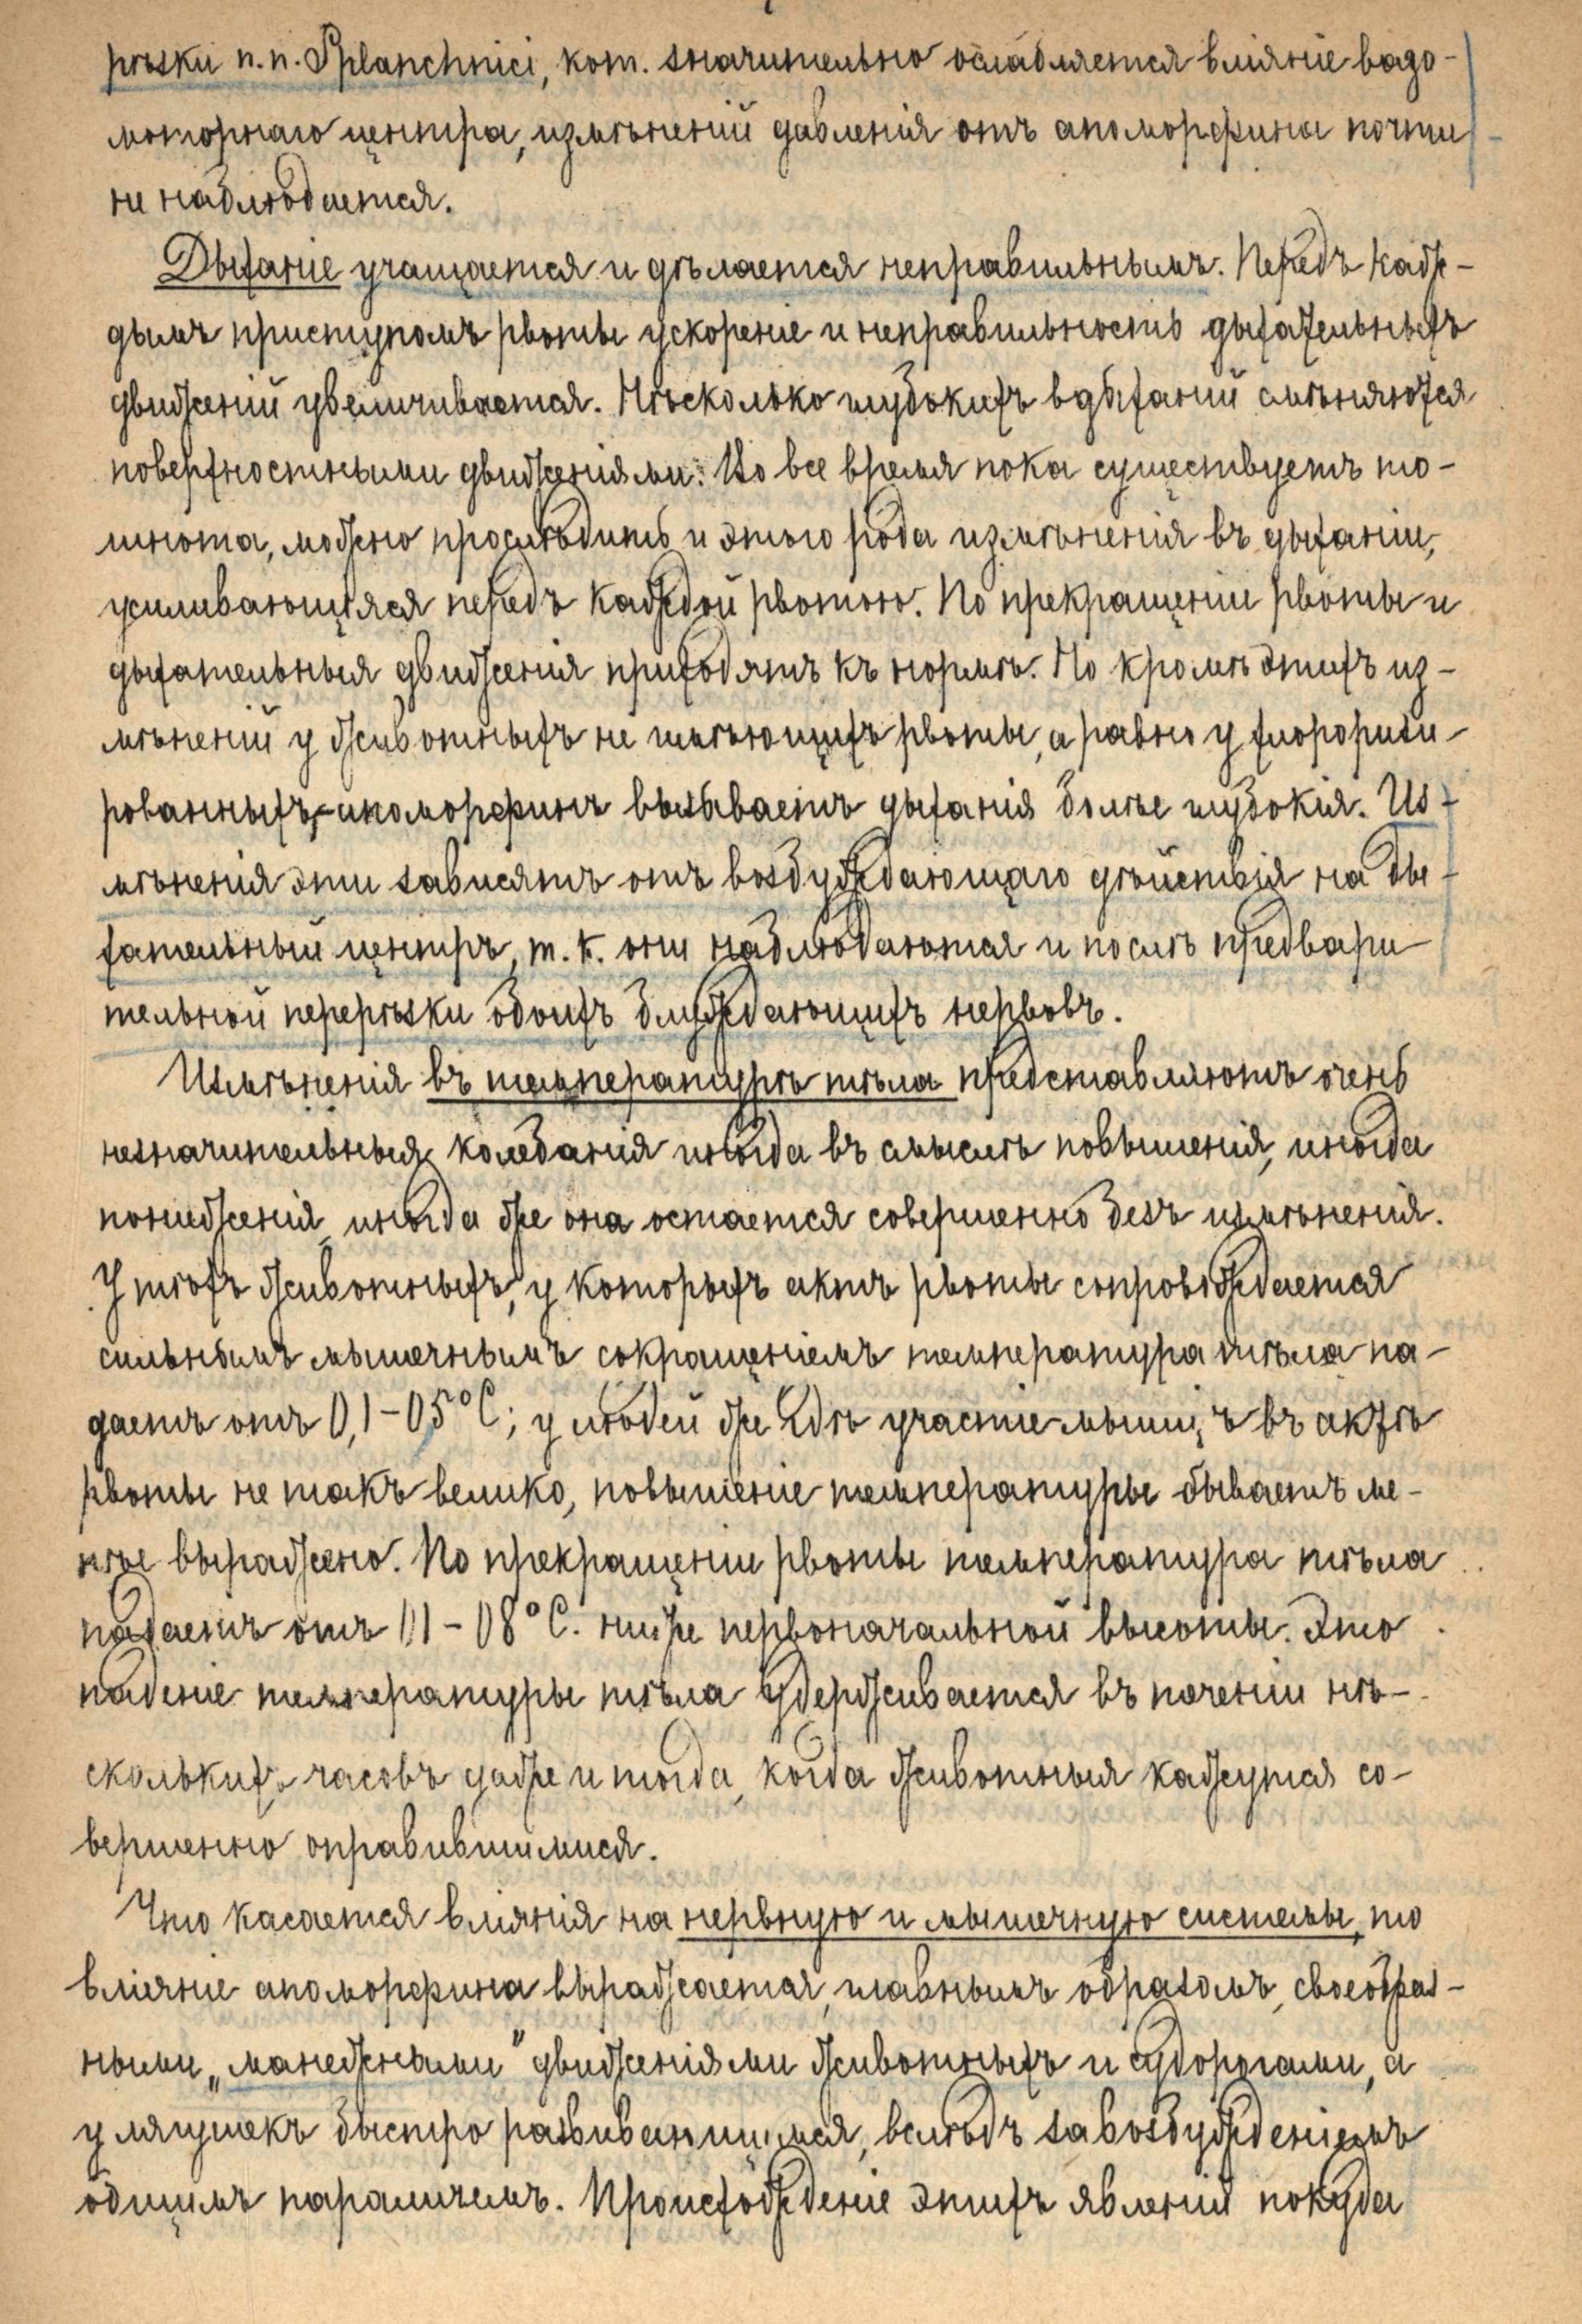 рѣзки n. n. Splanchnici, кот. значительно ослабляется вліяніе вазо-
моторнаго центра, измѣненій давленія отъ апоморфина почти
не наблюдается.
Дыханіе учащается и дѣлается неправильнымъ. Передъ каж-
дымъ приступомъ рвоты ускореніе и неправильность дыхательныхъ
движеній увеличивается. Нѣсколько глубокихъ вдыханій смѣняются
поверхностными движеніями. Во все время пока существуетъ то-
шнота, можно прослѣдить и этого рода измѣненія въ дыханіи,
усиливающіяся передъ каждой рвотою. По прекращеніи рвоты и
дыхательныя движенія приходятъ къ нормѣ. Но кромѣ этихъ из-
мѣненій у животныхъ не имѣющихъ рвоты, а равно у хлорофизи-
рованныхъ,- апоморфинъ вызываетъ дыханія болѣе глубокія. Из-
мѣненія эти зависятъ отъ возбуждающаго дѣйствія на ды-
хательный центръ, т. к. они наблюдаются и послѣ предвари-
тельной перерѣзки обоихъ блуждающихъ нервовъ.
Измѣненія въ температурѣ тѣла представляютъ очень
незначительныя колебанія иногда въ смыслѣ повышенія, иногда
пониженія, иногда же она остается совершенно безъ измѣненія.
У тѣхъ животныхъ, у которыхъ актъ рвоты сопровождается
сильнымъ мышечнымъ сокращеніемъ температура тѣла па-
даетъ отъ 0,1-0,5°C; у людей же гдѣ участіе мышцъ въ актѣ
рвоты не такъ велико, повышеніе температуры бываетъ ме-
нѣе выражено. По прекращеніи рвоты температура тѣла
падаетъ отъ 01-08°C. ниже первоначальной высоты. Это
паденіе температуры тѣла удерживается въ теченіи нѣ-
сколькихъ часовъ даже и тогда, когда животныя кажутся со-
вершенно оправившимися.
Что касается вліянія на нервную и мышечную системы, то
вліяніе апоморфина выражается, главнымъ образомъ, своеобраз-
ными „манежными" движеніями животныхъ и судорогами, а
у лягушекъ быстро развивающимся, вслѣдъ за возбужденіемъ
общимъ параличемъ. Происхожденіе этихъ явленій покуда